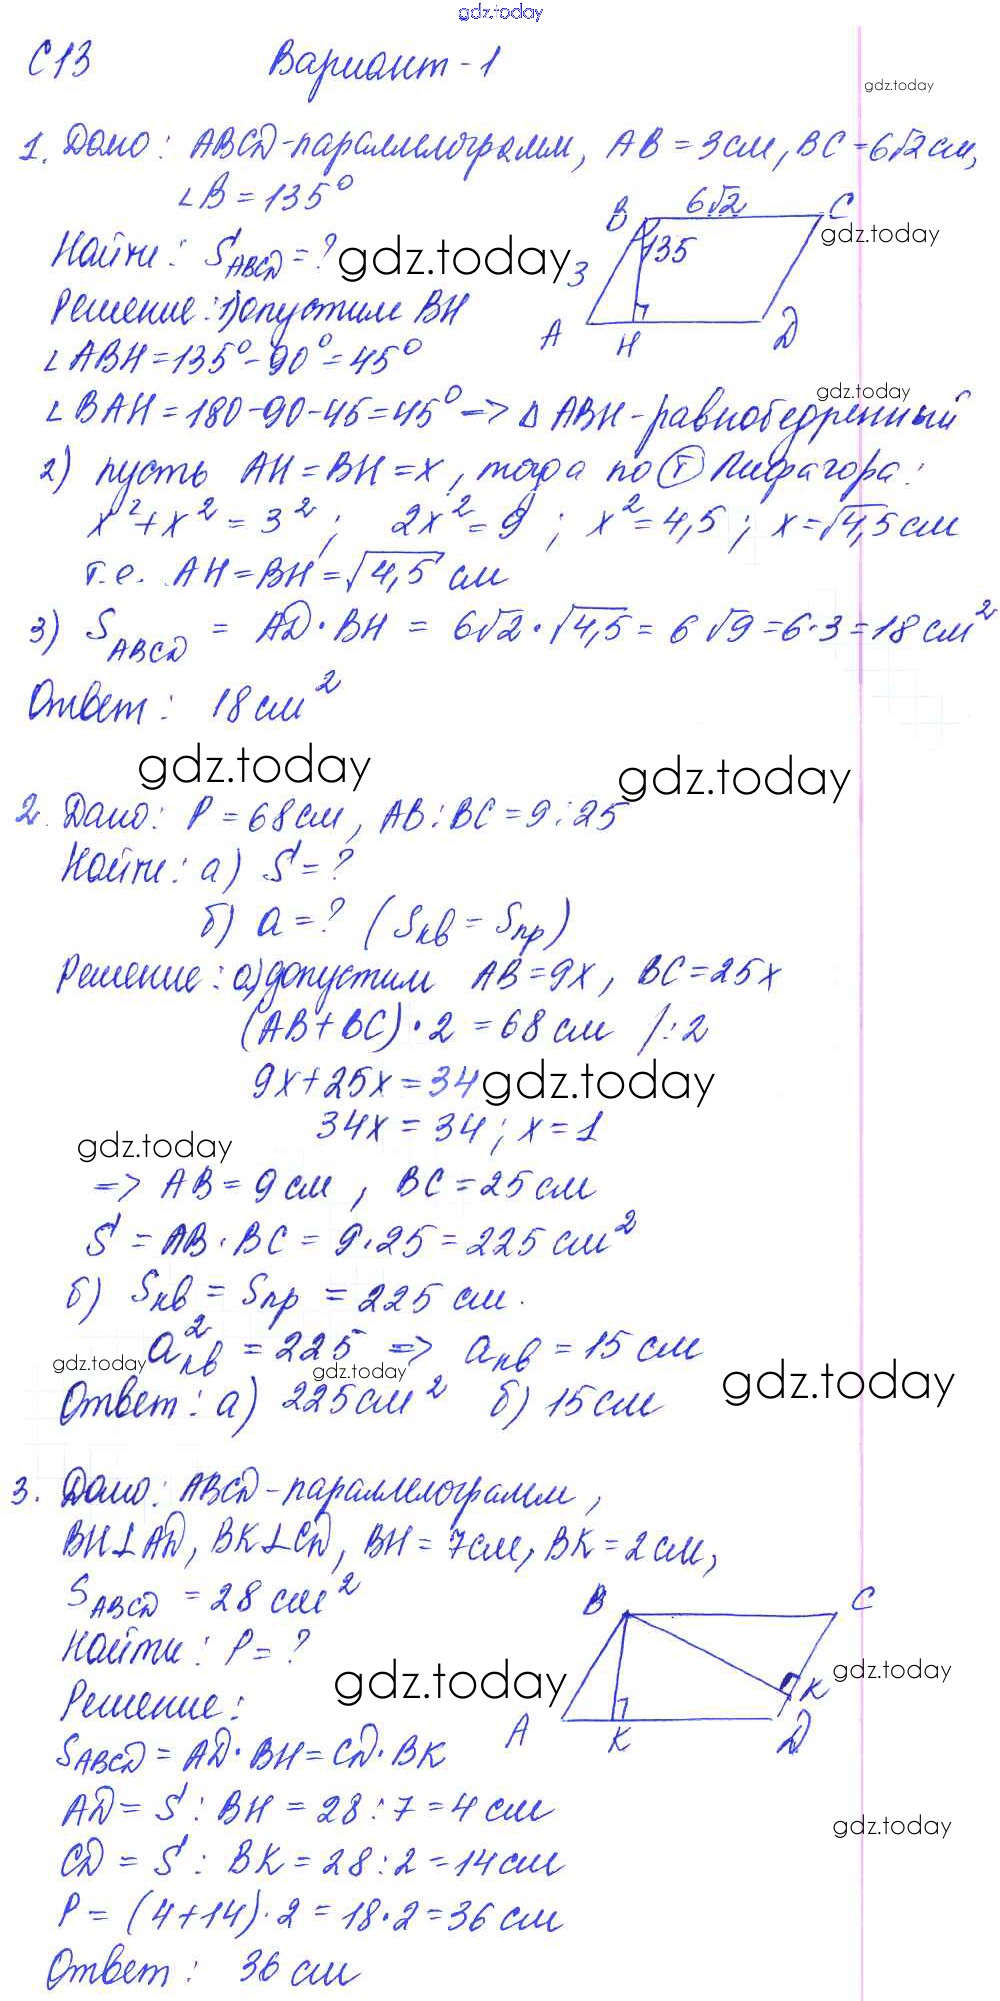 gdz.today
С13 Вариант-1
gdz.today
1. Дано: ABCD-параллелограмм, AB = 3см, BC = 6√2см,
∠B = 135°
B 6√2 C
gdz.today
Найти: S_ABCD = ?
gdz.today
3 135
Решение: 1) опустим BH
A H D
∠ABH = 135° - 90° = 45°
gdz.today
∠BAH = 180-90-45 = 45° => △ABH-равнобедренный
2) пусть AH = BH = x, тогда по Т Пифагора:
x² + x² = 3²; 2x² = 9; x² = 4,5; x = √4,5 см
т.е. AH = BH = √4,5 см
3) S_ABCD = AD · BH = 6√2 · √4,5 = 6√9 = 6·3 = 18 см²
Ответ: 18 см²
gdz.today
gdz.today
2. Дано: P = 68 см, AB : BC = 9 : 25
Найти: а) S = ?
б) a = ? (Sкв = Sпр)
Решение: а) допустим AB = 9x, BC = 25x
(AB + BC) · 2 = 68 см /:2
9x + 25x = 34
gdz.today
34x = 34; x = 1
gdz.today
=> AB = 9 см, BC = 25 см
S = AB · BC = 9·25 = 225 см²
б) Sкв = Sпр = 225 см.
a²кв = 225 => aкв = 15 см
gdz.today
gdz.today
gdz.today
Ответ: а) 225 см² б) 15 см
3. Дано: ABCD-параллелограмм,
BH⊥AD, BK⊥CD, BH = 7 см, BK = 2 см,
S_ABCD = 28 см²
B C
Найти: P = ?
gdz.today
gdz.today
K
Решение:
A K D
S_ABCD = AD · BH = CD · BK
AD = S : BH = 28 : 7 = 4 см
gdz.today
CD = S : BK = 28 : 2 = 14 см
P = (4 + 14) · 2 = 18 · 2 = 36 см
Ответ: 36 см